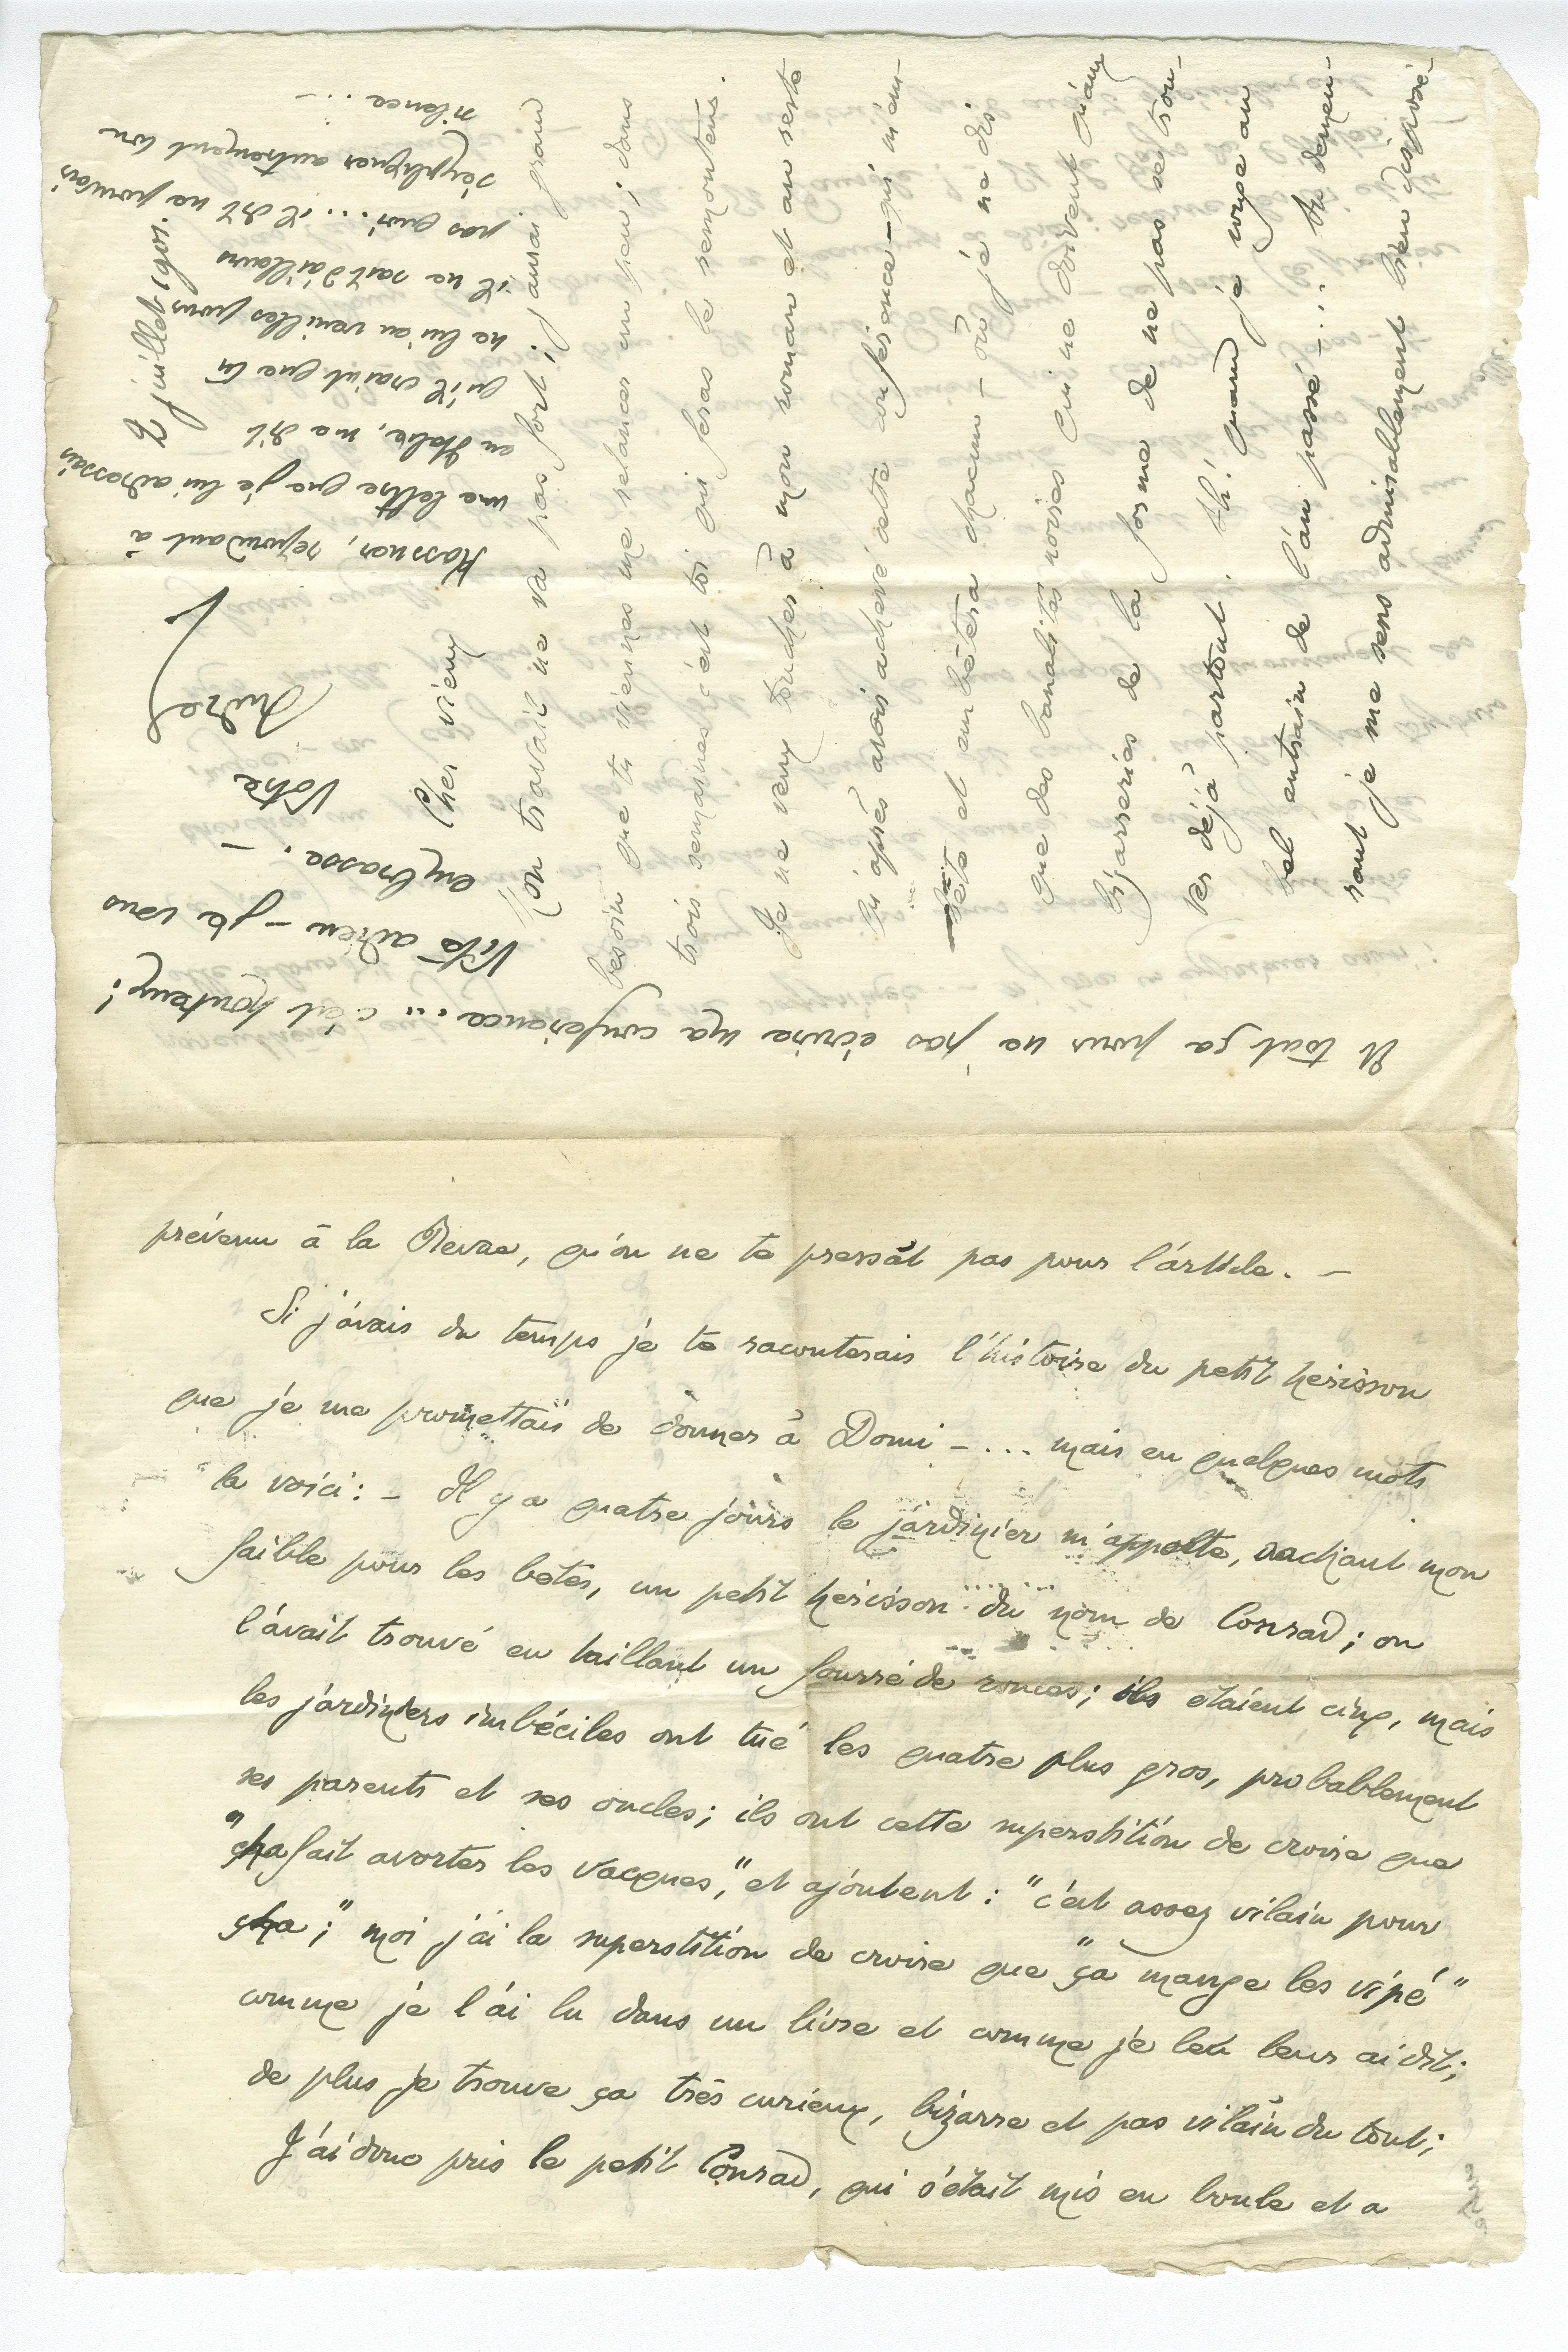 prévenu à la Revue, qu'on ne te pressât pas pour l'article. –
Si j'avais du temps je te raconterais l'histoire du petit hérisson
que je me promettais de donner à Domi – ... mais en quelques mots
la voici : – Il y a quatre jours le jardinier m'apporte, sachant mon
faible pour les bêtes, un petit hérisson du nom de Conrad ; on
l'avait trouvé en taillant un fourré de ronces ; ils étaient cinq, mais
les jardiniers imbéciles ont tué les quatre plus gros, probablement
ses parents et ses oncles ; ils ont cette superstition de croire que
"cha fait avorter les vacques," et ajoutent : "c'est assez vilain pour
cha ;" moi j'ai la superstition de croire que "ça mange les vipé"
comme je l'ai lu dans un livre et comme je leur ai dit ;
de plus je trouve ça très curieux, bizarre et pas vilain du tout ;
J'ai donc pris le petit Conrad, qui s'était mis en boule et a
Et tout ça pour ne pas écrire ma conférence ... c'est honteux !
Vite adieu – je vous
embrasse. –
Votre
André
Kassner, répondant à
une lettre que je lui adressais
en Italie, me dit
qu'il craint que tu
ne lui en veuilles pour
il ne sait d'ailleurs
pas quoi ... il dit ne pouvoir
s'expliquer autrement ton
silence ... –
2 juillet 1901.
Cher vieux
Mon travail ne va pas fort ; j'aurai grand
besoin que tu viennes me relancer un peu ; dans
trois semaines c'est toi qui feras le remonteur.
Je ne veux toucher à mon roman et au reste
qu'après avoir achevé cette conférence – qui m'em-
bête et embêtera chacun – où je ne dis
que des banalités noires qui ne doivent qu'aux
bizarreries de la forme de ne pas se trou-
ver déjà partout. Ah ! quand je songe au
bel entrain de l'an passé – ... tu demeu-
rant je me sens admirablement bien disposé –